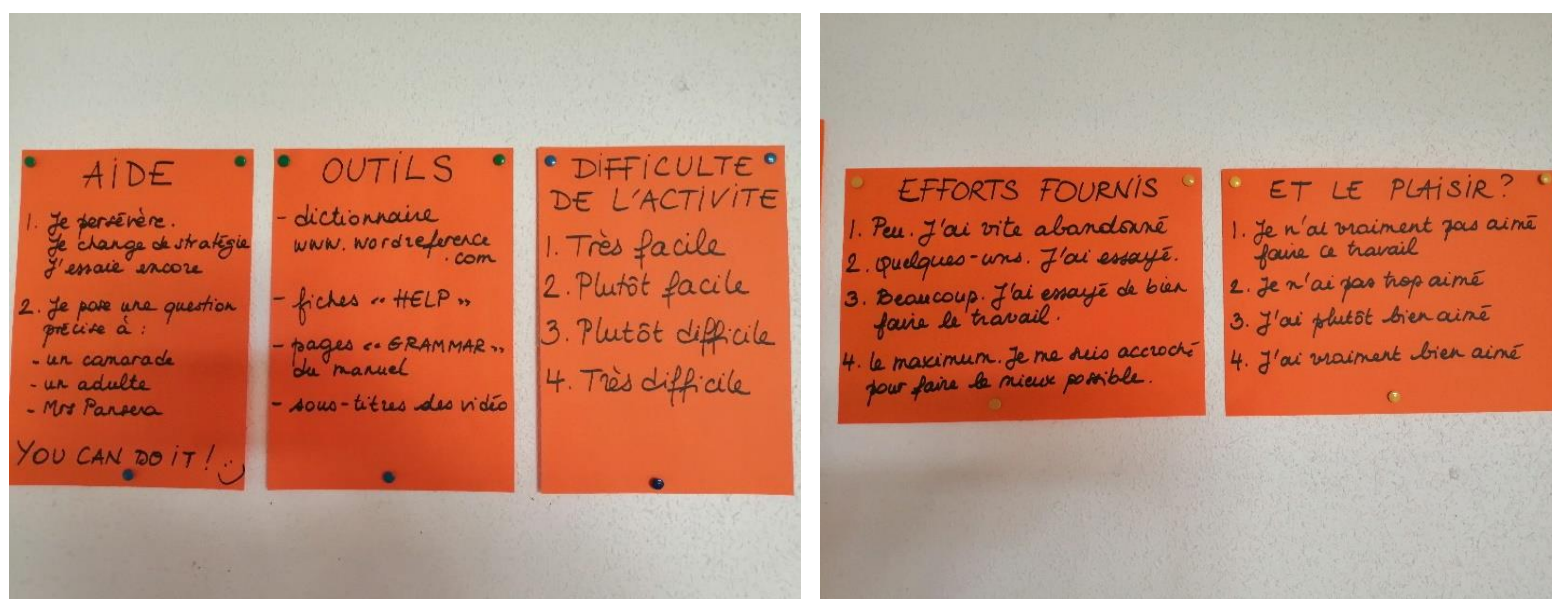 AIDE
1. Je persévère.
Je change de stratégie
J'essaie encore
2. Je pose une question
précise à :
- un camarade
- un adulte
- Mrs Pansera
YOU CAN DO IT !
OUTILS
- dictionnaire
www.wordreference
.com
- fiches « HELP »
- pages « GRAMMAR »
du manuel
- sous-titres des vidéo
DIFFICULTE
DE L'ACTIVITE
1. Très facile
2. Plutôt facile
3. Plutôt difficile
4. Très difficile
EFFORTS FOURNIS
1. Peu. J'ai vite abandonné
2. Quelques-uns. J'ai essayé.
3. Beaucoup. J'ai essayé de bien
faire le travail.
4. Le maximum. Je me suis accroché
pour faire le mieux possible.
ET LE PLAISIR ?
1. Je n'ai vraiment pas aimé
faire ce travail
2. Je n'ai pas trop aimé
3. J'ai plutôt bien aimé
4. J'ai vraiment bien aimé